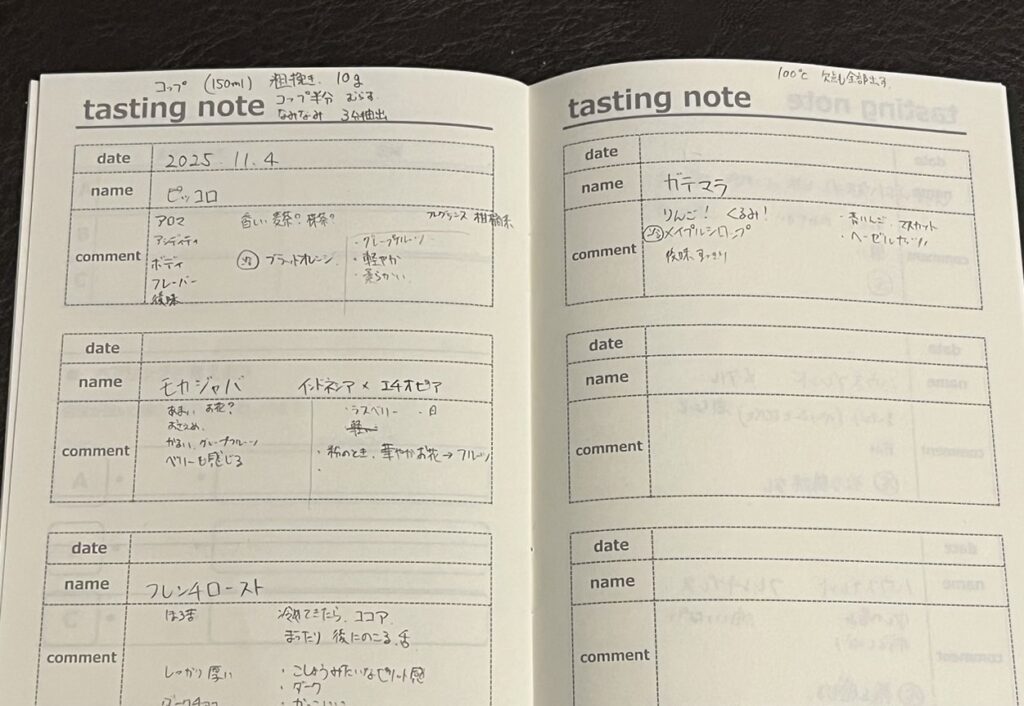 コップ (150ml) 粗挽き. 10g
tasting note コップ半分 むらす
なみなみ 3分抽出
date 2025.11.4
name ピッコロ
アロマ 香ばしい 麦茶? フレグランス 柑橘系
アシディティ ・グレープフルーツ
comment ボディ ブラッドオレンジ ・軽やか
フレーバー ・柔らかい
後味
date
name モカジャバ インドネシア × エチオピア
あまい お花? ・ラズベリー ・白
おさえめ.
かるい、グレープフルーツ
comment ベリーも感じる ・粉のとき、華やかお花→フルーツ
date
name フレンチロースト
ほろ苦 冷めてきたら、ココア
まったり 後にのこる
comment
しっかり 厚い ・こしょうみたいな
・ダーク
ダークチョコ ・かっこいい
100℃ 欠点も全部出す.
tasting note
date
name ガテマラ
りんご! くるみ! ・青りんご、マスカット
comment メイプルシロップ ・ヘーゼルナッツ
後味 すっきり
date
name
comment
date
name
comment